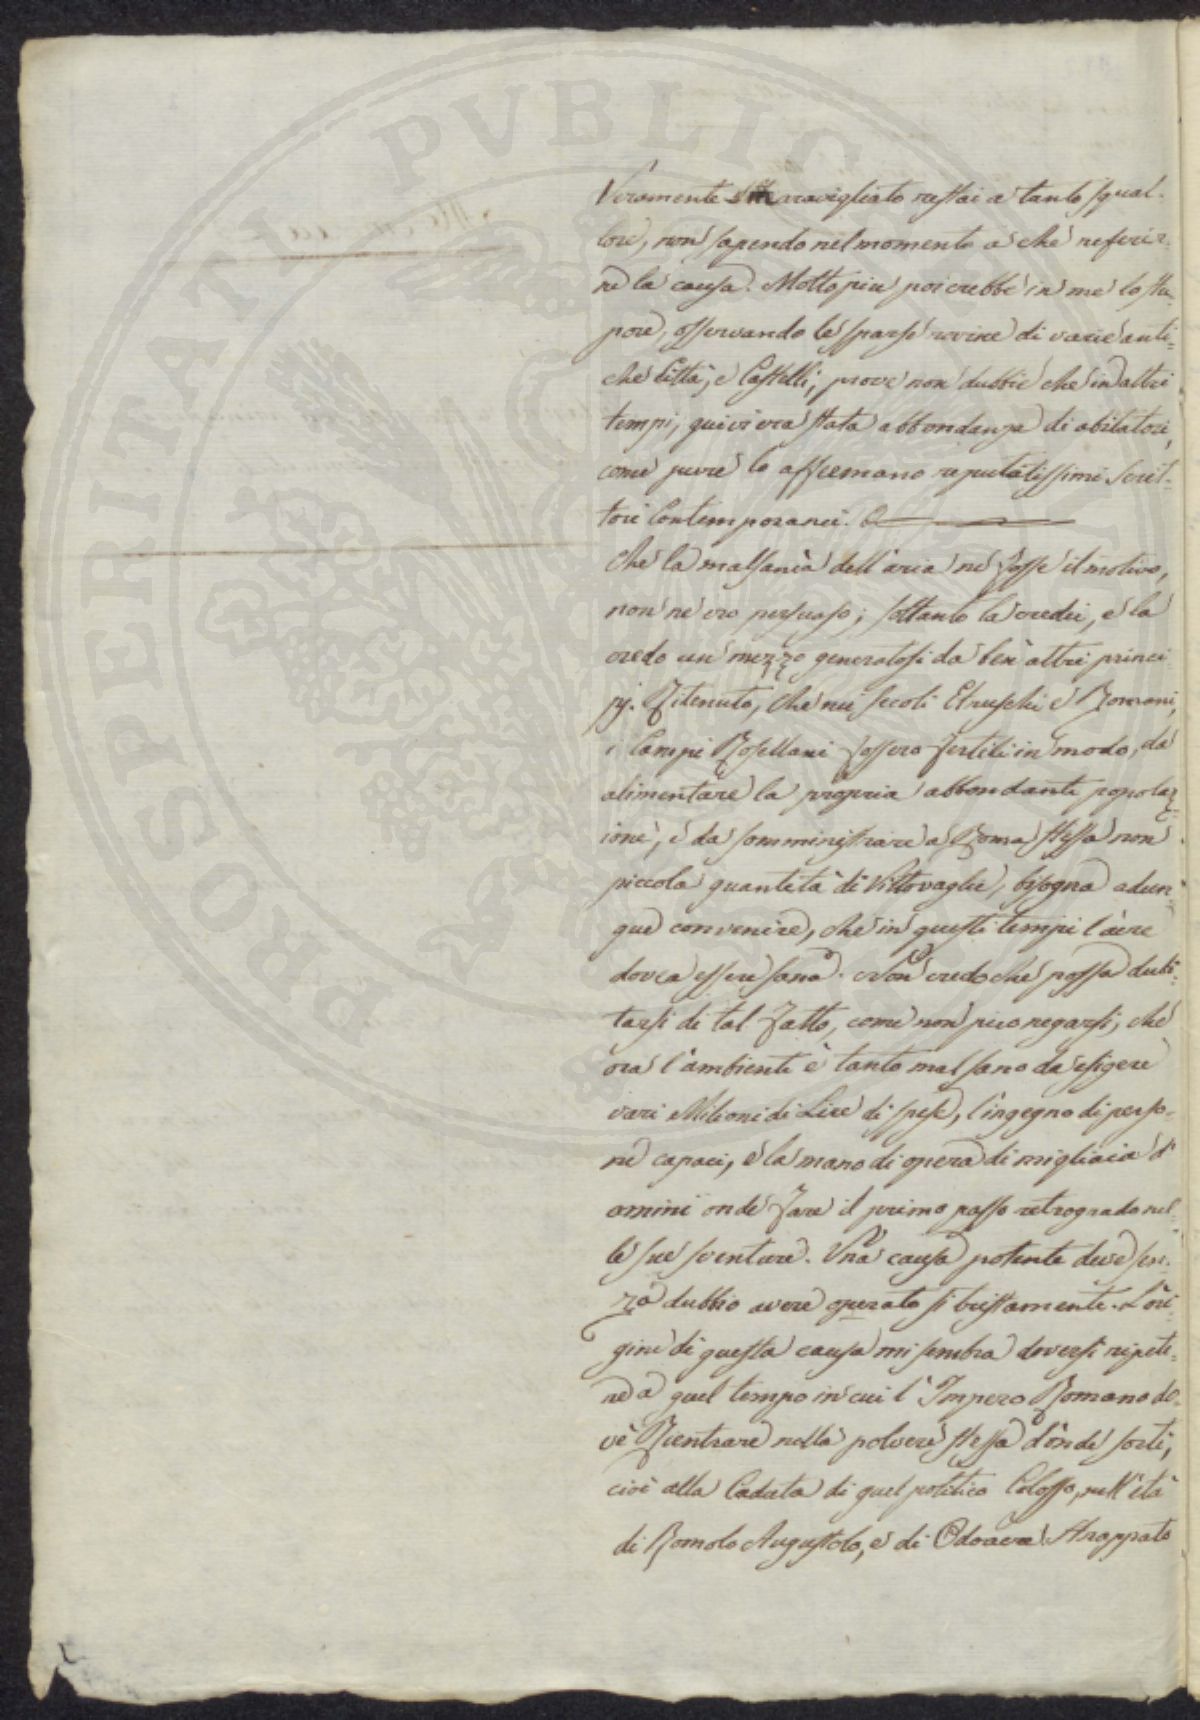 Veramente Maravigliato restai a tanto squal-
lore, non sapendo nel momento a che referir-
ne la causa. Molto piu poi crebbe in me lo stu-
pore, osservando le sparse rovine di varie anti-
che Città, e Castelli, prove non dubbie che in altri
tempi, quivi era stata abbondanza di abitatori,
come pure lo affermano reputatissimi Scrit-
tori Contemporanei.
Che la malsania dell'aria ne fosse il motivo,
non ne ero persuaso; soltanto la credei, e la
credo un mezzo generatosi da ben altri princi
pj. Ritenuto, che nei secoli Etruschi e Romani,
i Campi Rosellani fossero fertili in modo, da
alimentare la propria abbondante popolaz-
ione, e da somministrare a Roma stessa non
piccola quantità di Vittovaglie, bisogna adun-
que convenire, che in questi tempi l'aere
dovea essere sana. Non credo che possa dubi-
tarsi di tal fatto, come non puo negarsi, che
ora l'ambiente è tanto mal sano da esigere
vari Milioni di Lire di spese, l'ingegno di perso-
ne capaci, e la mano di opera di migliaia d'
omini onde fare il primo passo retrogrado nel-
le sue sventure. Una causa potente deve sen-
za dubbio avere operato sì tristamente. L'ori-
gine di questa causa mi sembra doversi ripete-
re a quel tempo in cui l'Impero Romano do-
vè Rientrare nella polvere stessa d'onde sortì,
cioè alla Caduta di quel politico Colosso, nell'età
di Romolo Augustolo, e di Odoacre. Strappato
PROSPERITATI PVBLIC